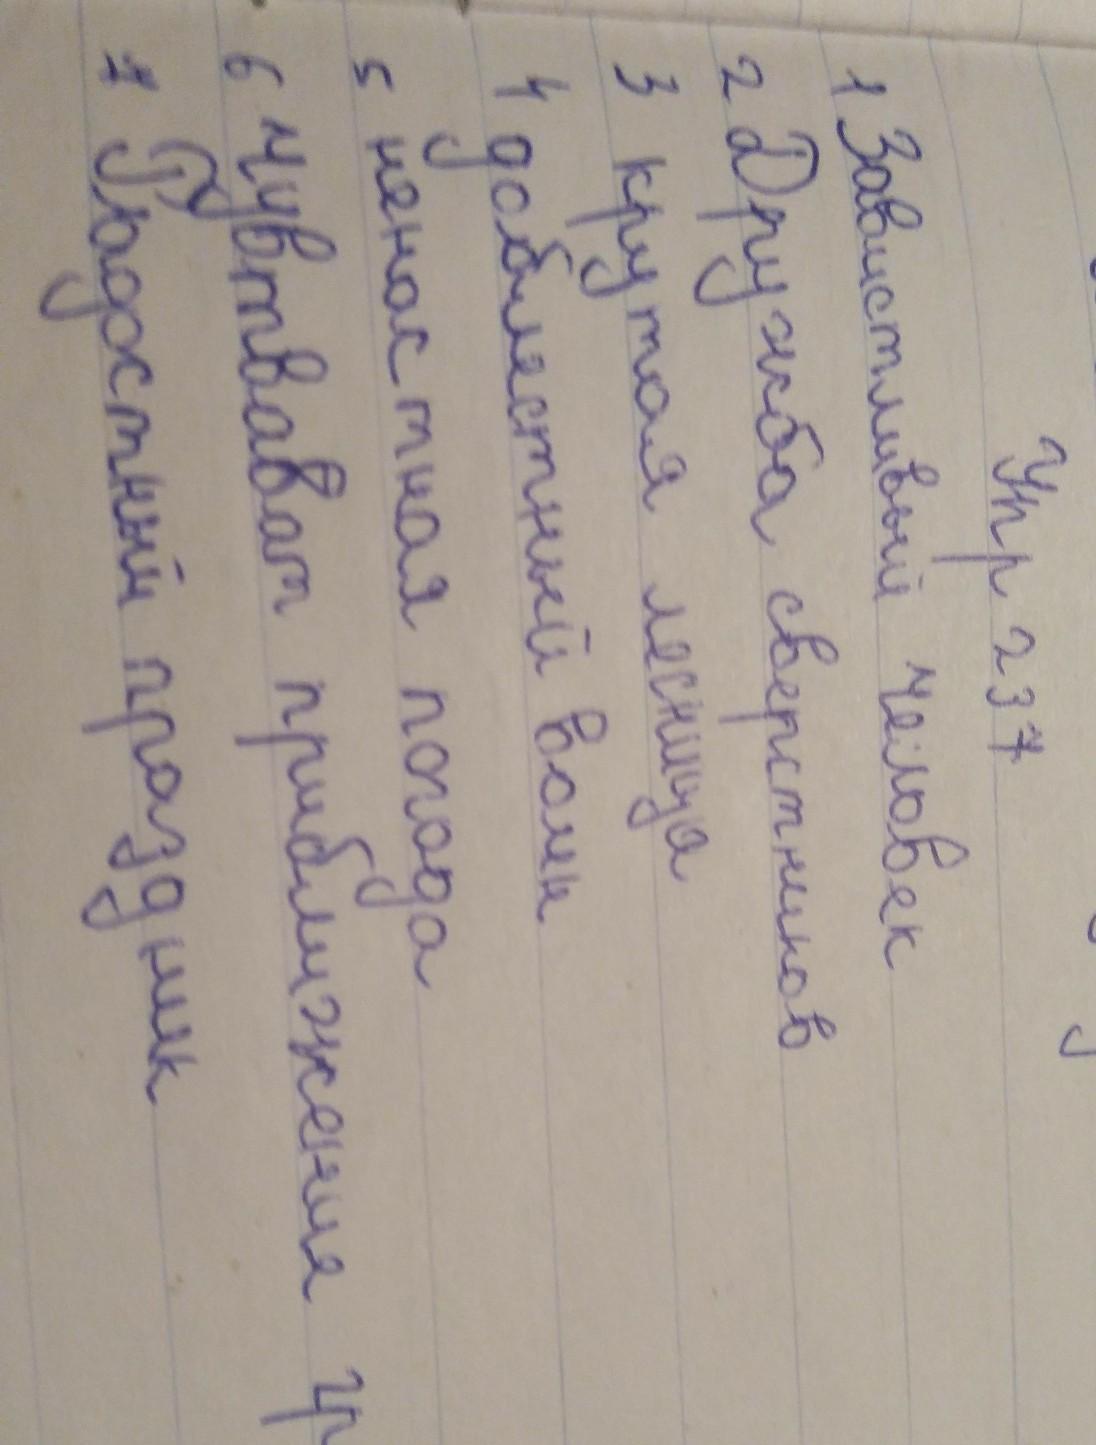 Упр 237
1 Завистливый человек
2 Дружба сверстников
3 крутая лесница
4 доблестный воин
5 неностная погода
6 Чувтвават приближение
7 Радостный праздник